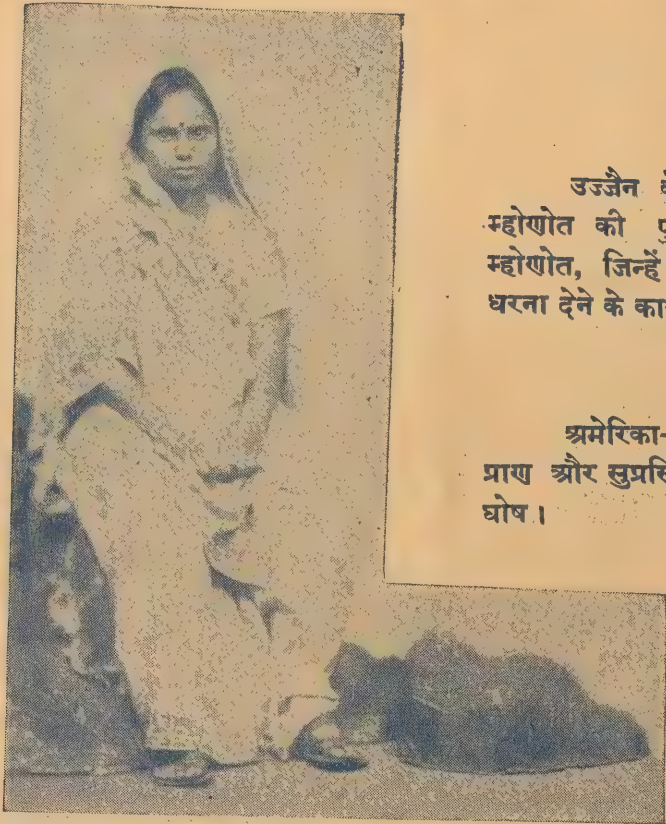 उज्जैन
म्होणोत की
म्होणोत, जिन्हें
धरना देने के
अमेरिका-
प्राण और
घोष।